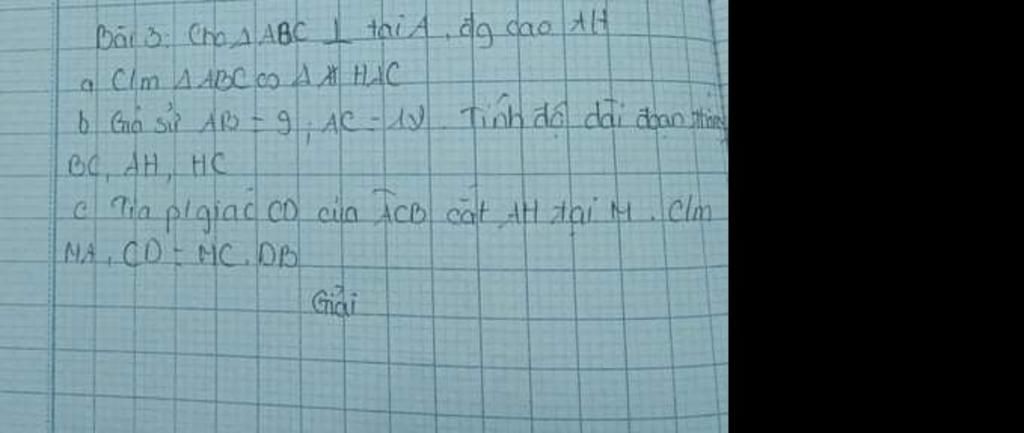 Bài 3: Cho Δ ABC ⊥ tại A, đg cao AH
a C/m Δ ABC ∽ Δ HAC
b Giả sử AB = 9; AC = 12. Tính độ dài đoạn thẳng
BC, AH, HC
c Tia p/giác CD của ACB cắt AH tại M. C/m
MA. CD = MC. DB
Giải